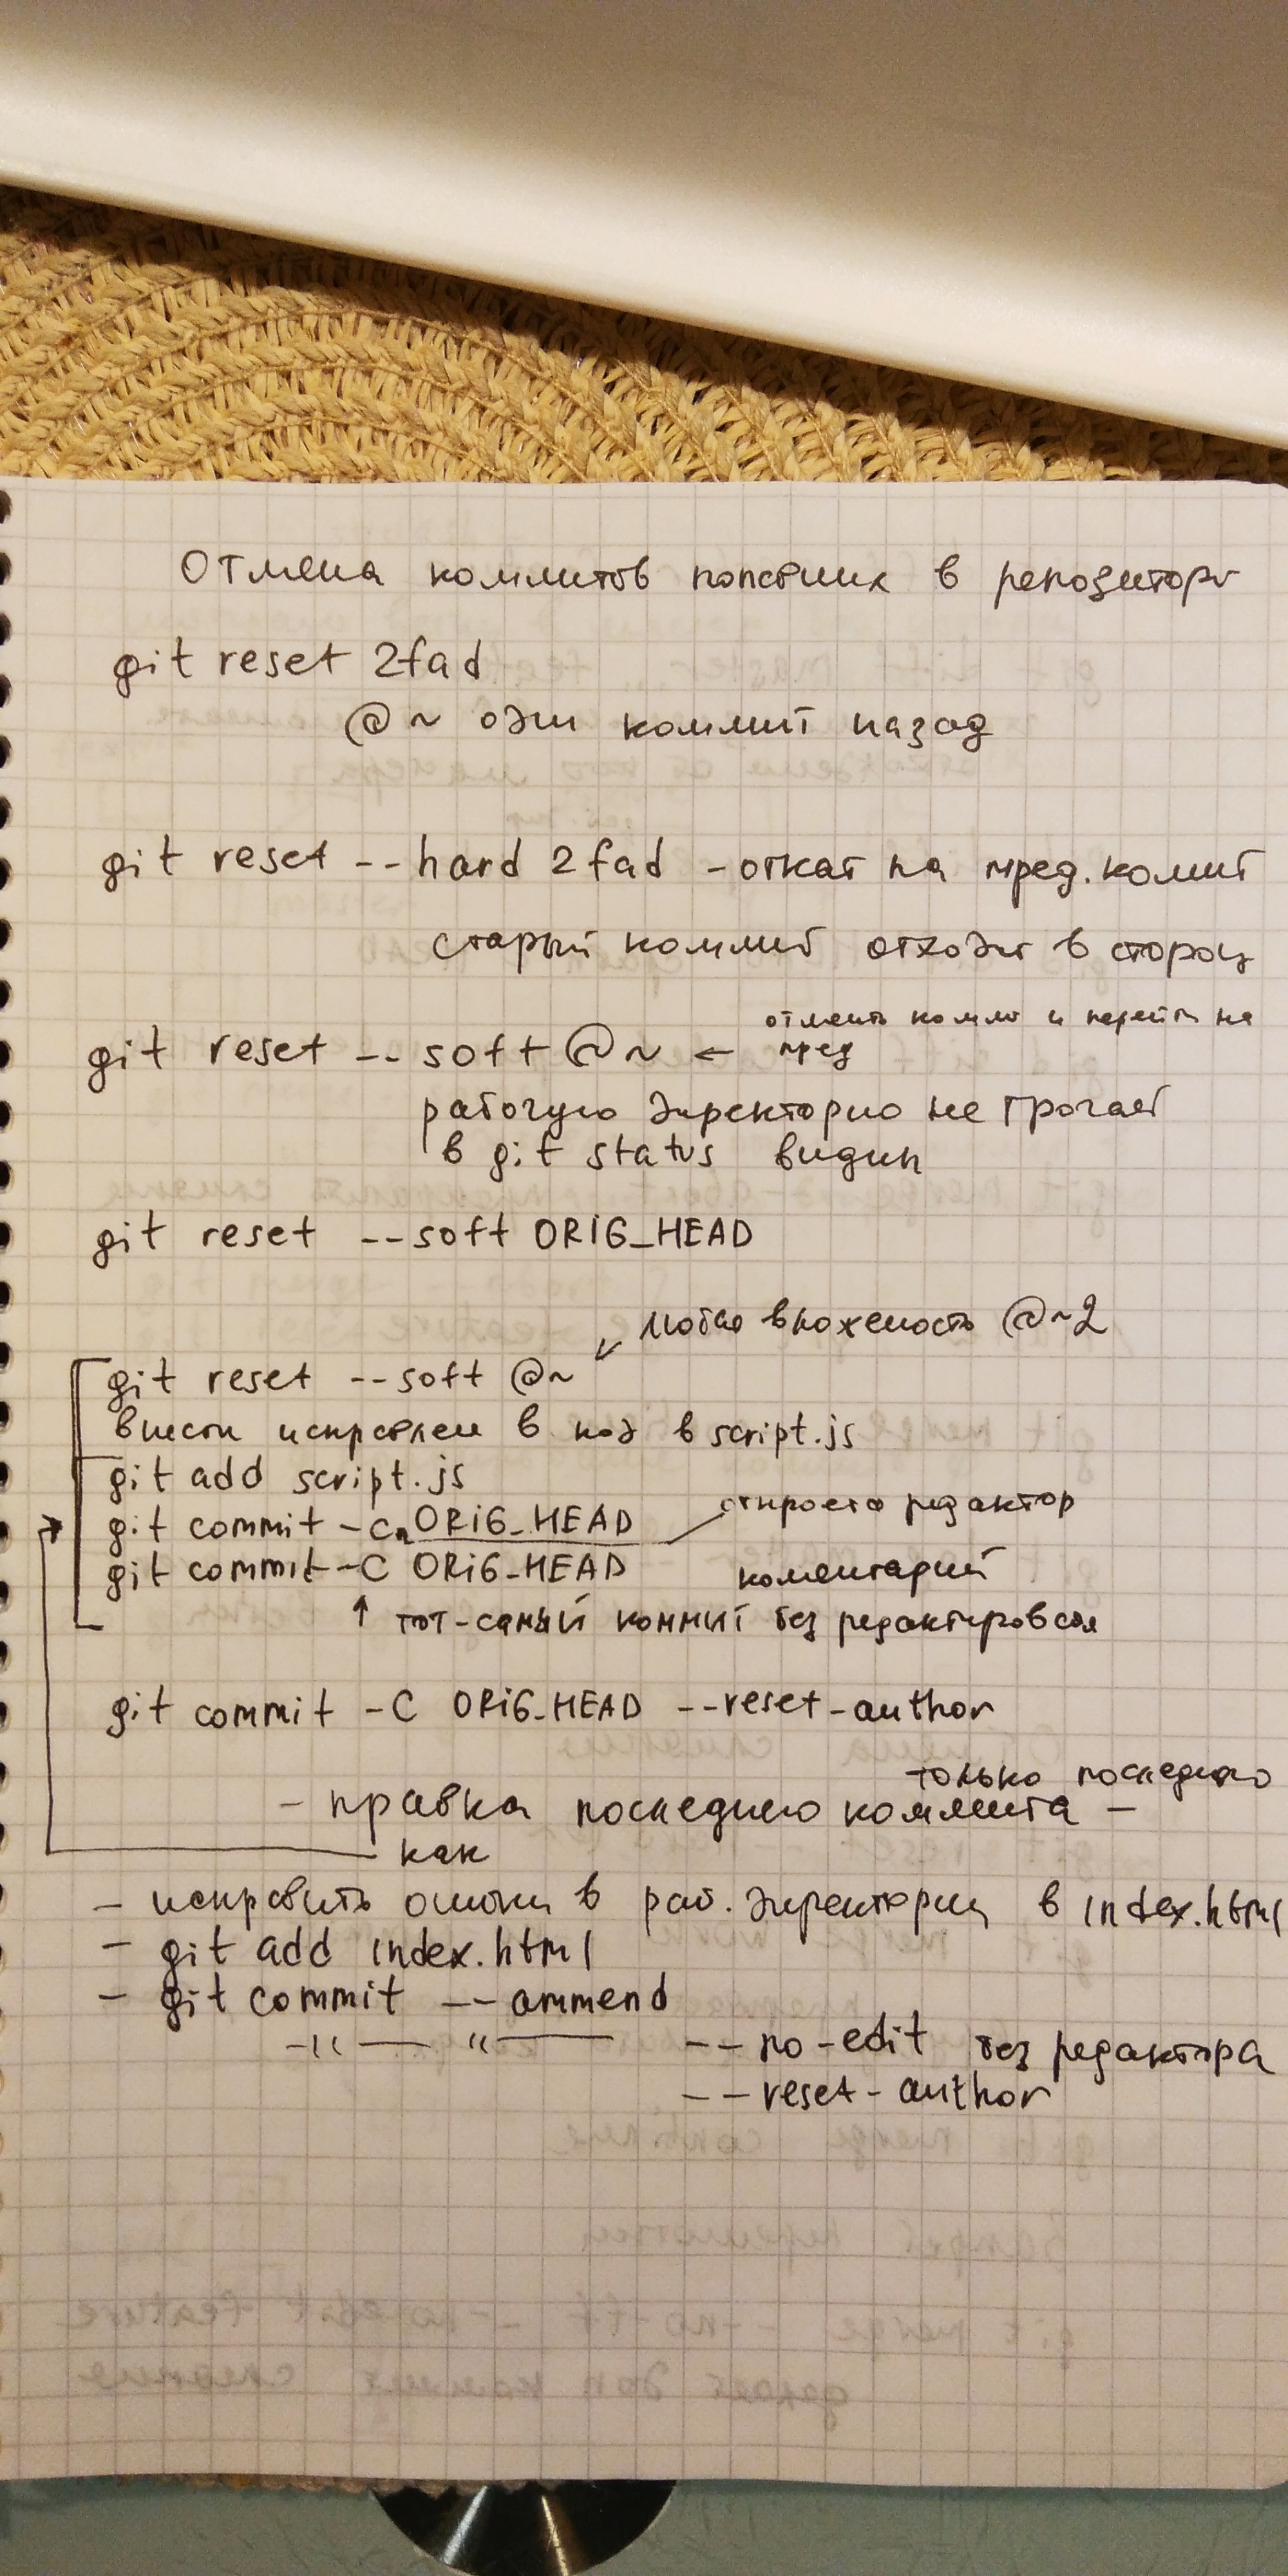 Отмена коммитов попавших в репозитори
git reset 2fad
@~ один коммит назад
git reset --hard 2fad - откат на пред. комит
старый коммит отходит в сторону
отменить коммит и перейти на
git reset --soft @~ ← пред
рабочую директорию не трогает
в git status видим
git reset --soft ORIG_HEAD
любая вложеность @~2
git reset --soft @~
внести исправлен в код в script.js
git add script.js
откроется редактор
git commit -c ORIG_HEAD
git commit -C ORIG_HEAD коментарий
↑ тот-самый коммит без редактирования
git commit -C ORIG_HEAD --reset-author
только последнего
- правка последнего коммита -
как
- исправить ошибки в раб. директории в index.html
- git add index.html
- git commit --ammend
-"- " --no-edit без редактора
--reset-author